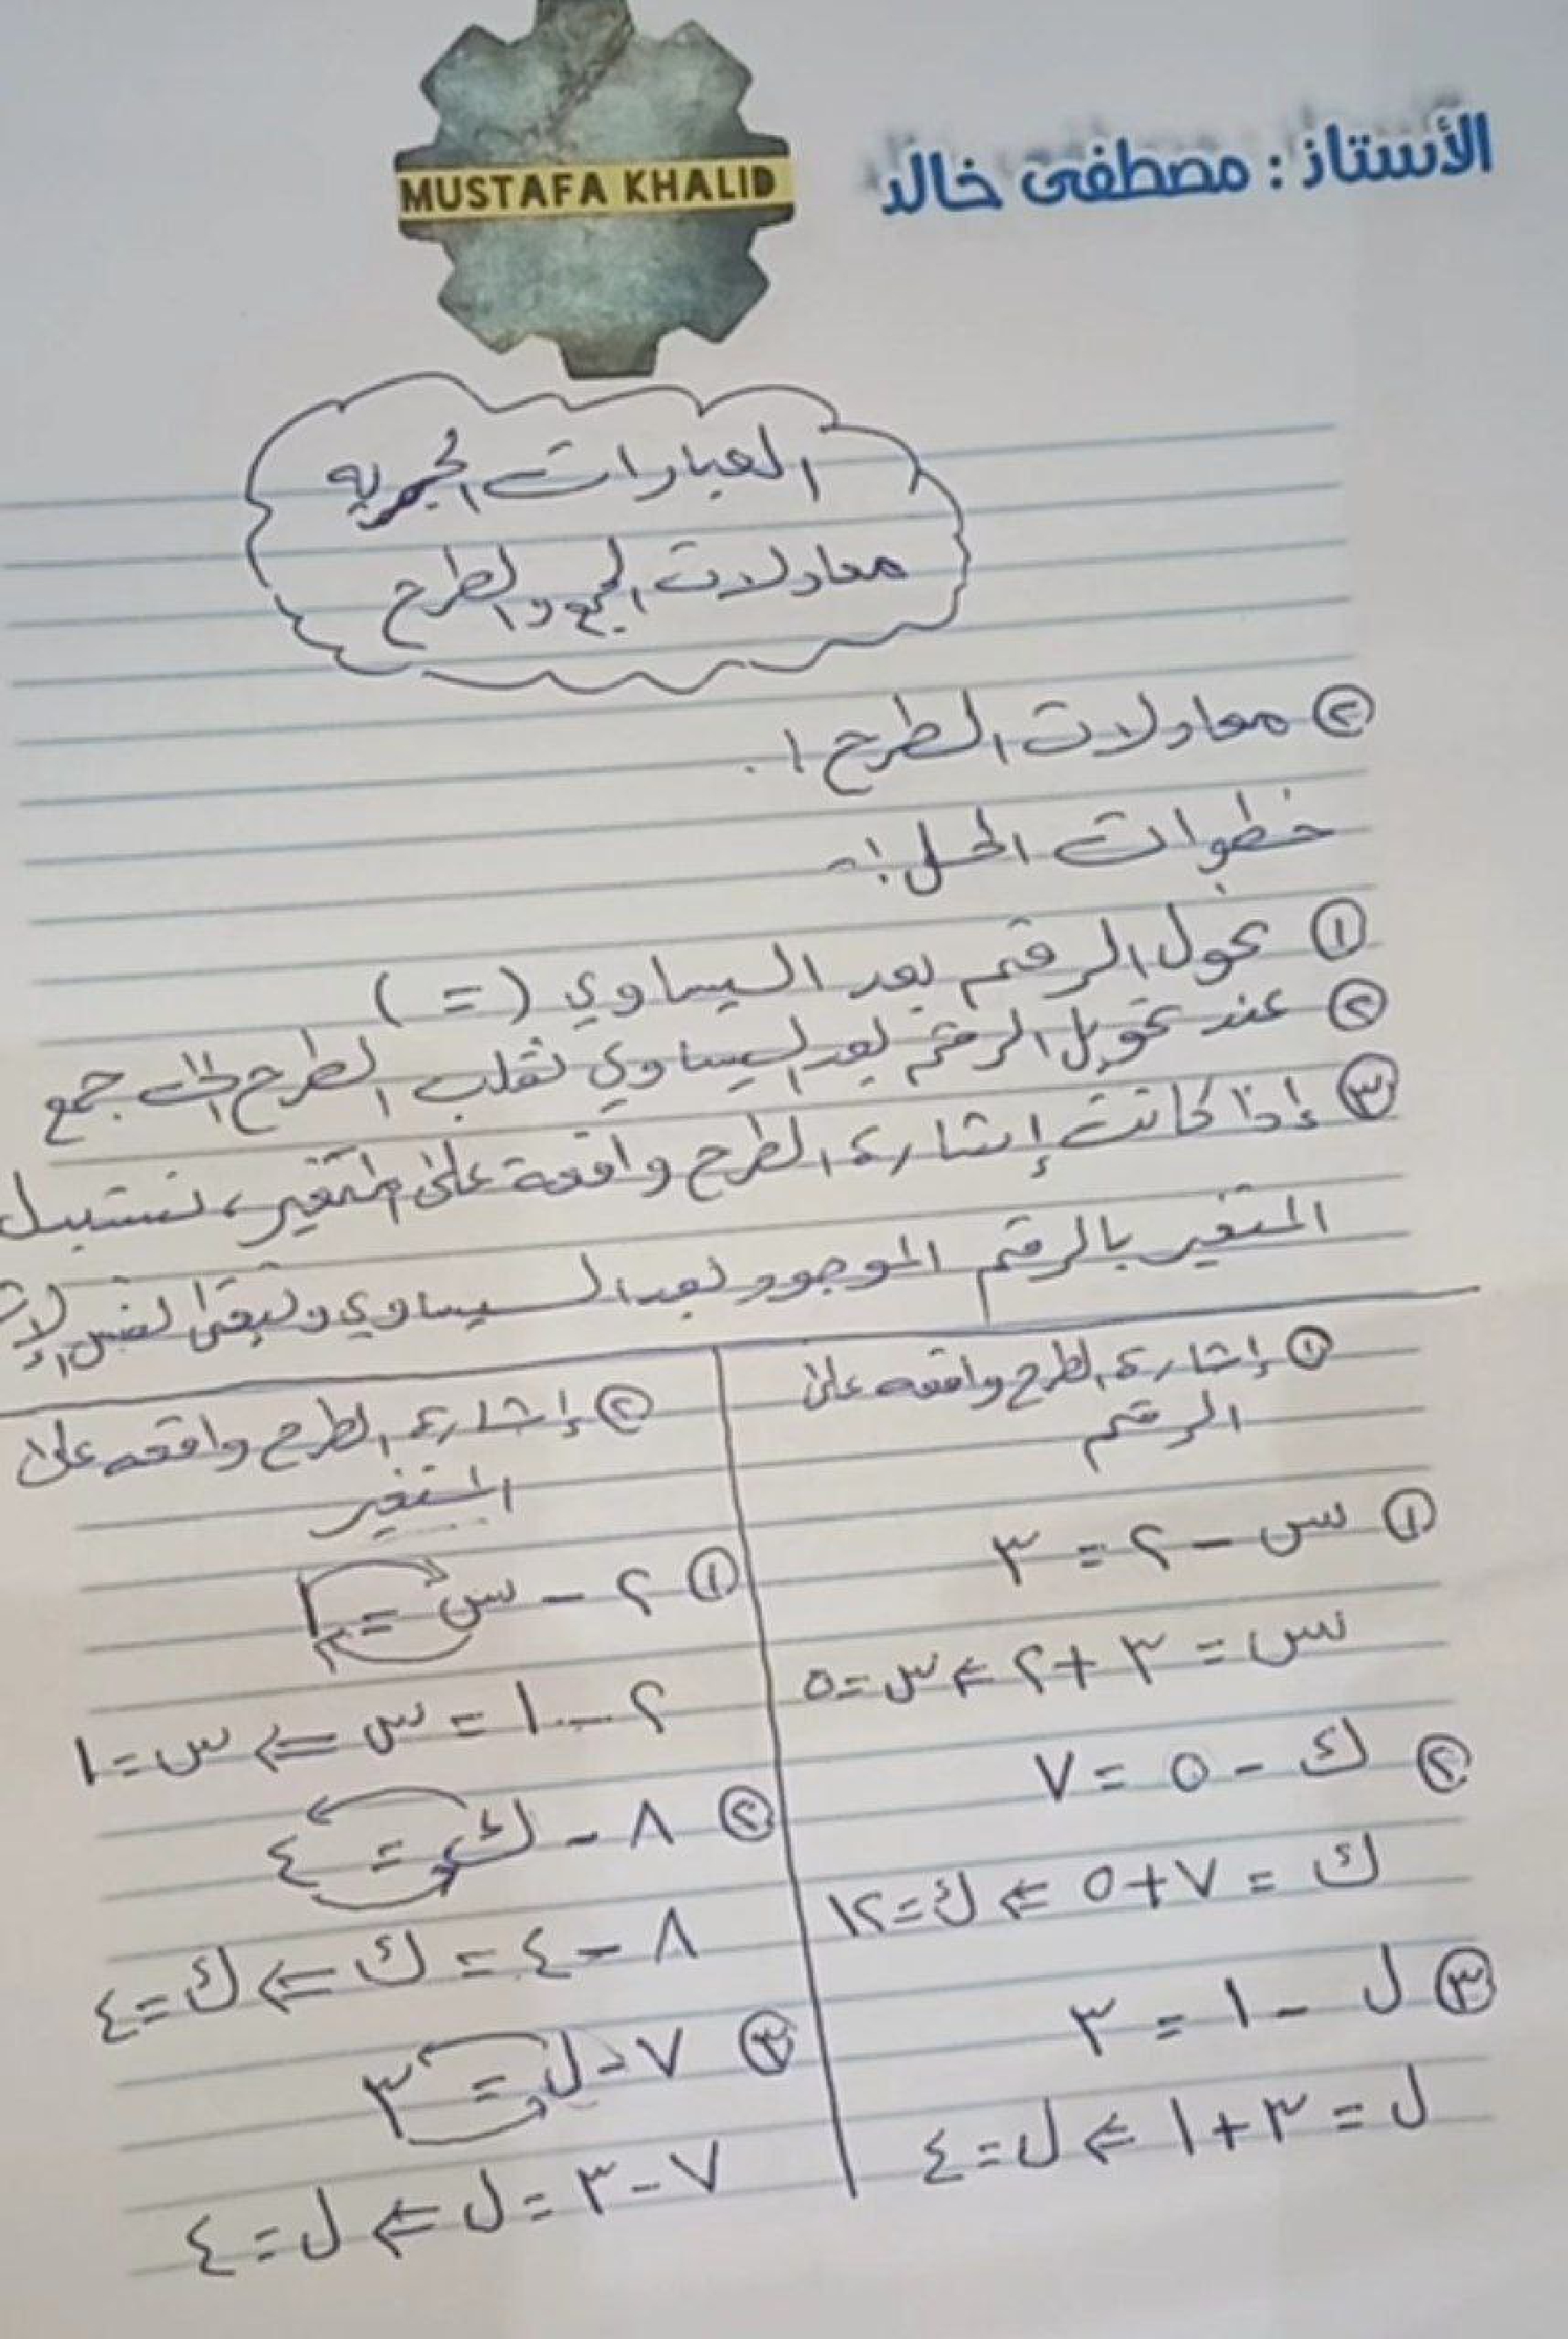 الأستاذ : مصطفى خالد
MUSTAFA KHALID
العبارات الجبريه
معادلات الجمع والطرح
② معادلات الطرح :.
خطوات الحل :-
① نحول الرقم بعد اليساوي ( = )
② عند تحويل الرقم بعد اليساوي نقلب الطرح إلى جمع
③ إذا كانت إشارة الطرح واقعة على المتغير، نستبدل
المتغير بالرقم الموجود بعد اليساوي وتبقى نفس
① إشارة الطرح واقعه على
الرقم
① س - ٢ = ٣
س = ٣ + ٢ ⇐ س = ٥
② ك - ٥ = ٧
ك = ٧ + ٥ ⇐ ك = ١٢
③ ل - ١ = ٣
ل = ٣ + ١ ⇐ ل = ٤
② إشارة الطرح واقعه على
المتغير
① ٢ - س = ١
٢ - ١ = س ⇐ س = ١
② ٨ - ك = ٤
٨ - ٤ = ك ⇐ ك = ٤
③ ٧ - ل = ٣
٧ - ٣ = ل ⇐ ل = ٤